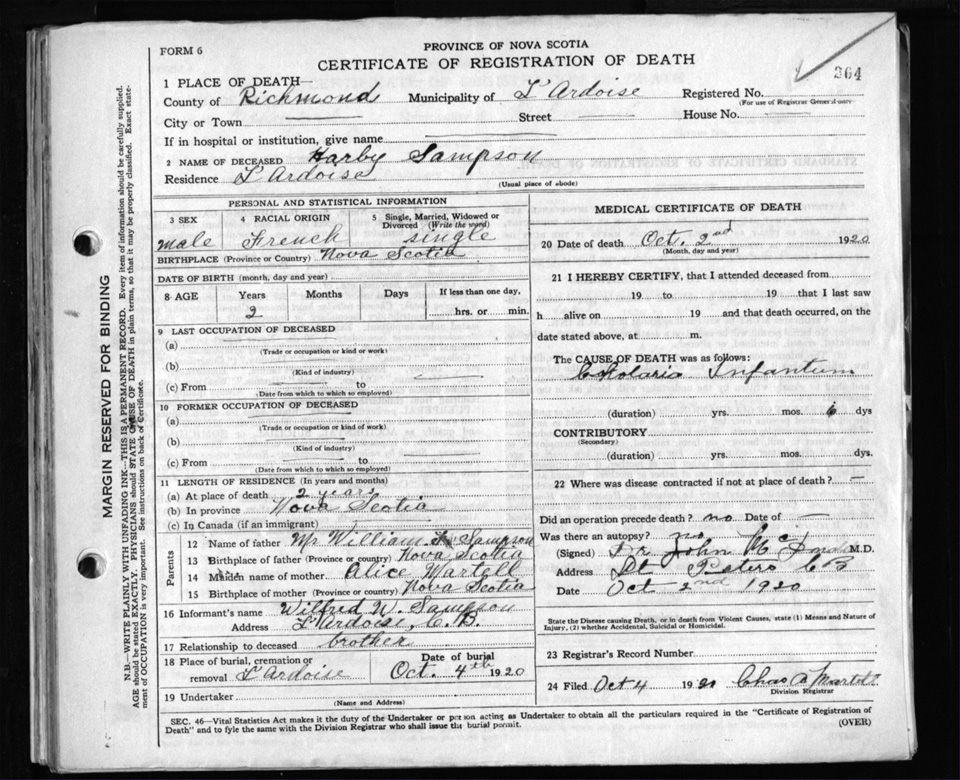 FORM 6
PROVINCE OF NOVA SCOTIA
CERTIFICATE OF REGISTRATION OF DEATH
364
1 PLACE OF DEATH—
County of Richmond Municipality of L'Ardoise Registered No.
(For use of Registrar General only)
City or Town Street House No.
If in hospital or institution, give name
2 NAME OF DECEASED Harby Sampson
Residence L'Ardoise
(Usual place of abode)
PERSONAL AND STATISTICAL INFORMATION
3 SEX 4 RACIAL ORIGIN 5 Single, Married, Widowed or Divorced (Write the word)
male French single
BIRTHPLACE (Province or Country) Nova Scotia
DATE OF BIRTH (month, day and year)
8 AGE Years Months Days If less than one day,
2 hrs. or min.
9 LAST OCCUPATION OF DECEASED
(a)
(Trade or occupation or kind or work)
(b)
(Kind of industry)
(c) From to
(Date from which to which so employed)
10 FORMER OCCUPATION OF DECEASED
(a)
(Trade or occupation or kind of work)
(b)
(Kind of industry)
(c) From to
(Date from which to which so employed)
11 LENGTH OF RESIDENCE (In years and months)
(a) At place of death 2 years
(b) In province Nova Scotia
(c) In Canada (if an immigrant)
Parents
12 Name of father Mr William Sampson
13 Birthplace of father (Province or country) Nova Scotia
14 Maiden name of mother Alice Martell
15 Birthplace of mother (Province or country) Nova Scotia
16 Informant's name Wilfred W. Sampson
Address L'Ardoise, C.B.
17 Relationship to deceased brother
18 Place of burial, cremation or removal L'Ardoise Date of burial Oct. 4th 1920
19 Undertaker
(Name and Address)
MEDICAL CERTIFICATE OF DEATH
20 Date of death Oct. 2nd 1920
(Month, day and year)
21 I HEREBY CERTIFY, that I attended deceased from
19 to 19 that I last saw
h alive on 19 and that death occurred, on the
date stated above, at m.
The CAUSE OF DEATH was as follows:
Infantum
(duration) yrs. mos. 6 dys
CONTRIBUTORY
(Secondary)
(duration) yrs. mos. dys.
22 Where was disease contracted if not at place of death? —
Did an operation precede death? no Date of —
Was there an autopsy? no
(Signed) Dr John M.D.
Address St Peters C B
Date Oct 2nd 1920
State the Disease causing Death, or in death from Violent Causes, state (1) Means and Nature of
Injury, (2) whether Accidental, Suicidal or Homicidal.
23 Registrar's Record Number
24 Filed Oct 4 19 Chas A Martell
Division Registrar
SEC. 46—Vital Statistics Act makes it the duty of the Undertaker or person acting as Undertaker to obtain all the particulars required in the "Certificate of Registration of
Death" and to fyle the same with the Division Registrar who shall issue the burial permit.
(OVER)
MARGIN RESERVED FOR BINDING
N.B.—WRITE PLAINLY WITH UNFADING INK—THIS IS A PERMANENT RECORD. Every item of information should be carefully supplied.
AGE should be stated EXACTLY. PHYSICIANS should STATE CAUSE OF DEATH in plain terms, so that it may be properly classified. Exact statement
of OCCUPATION is very important. See instructions on back of Certificate.